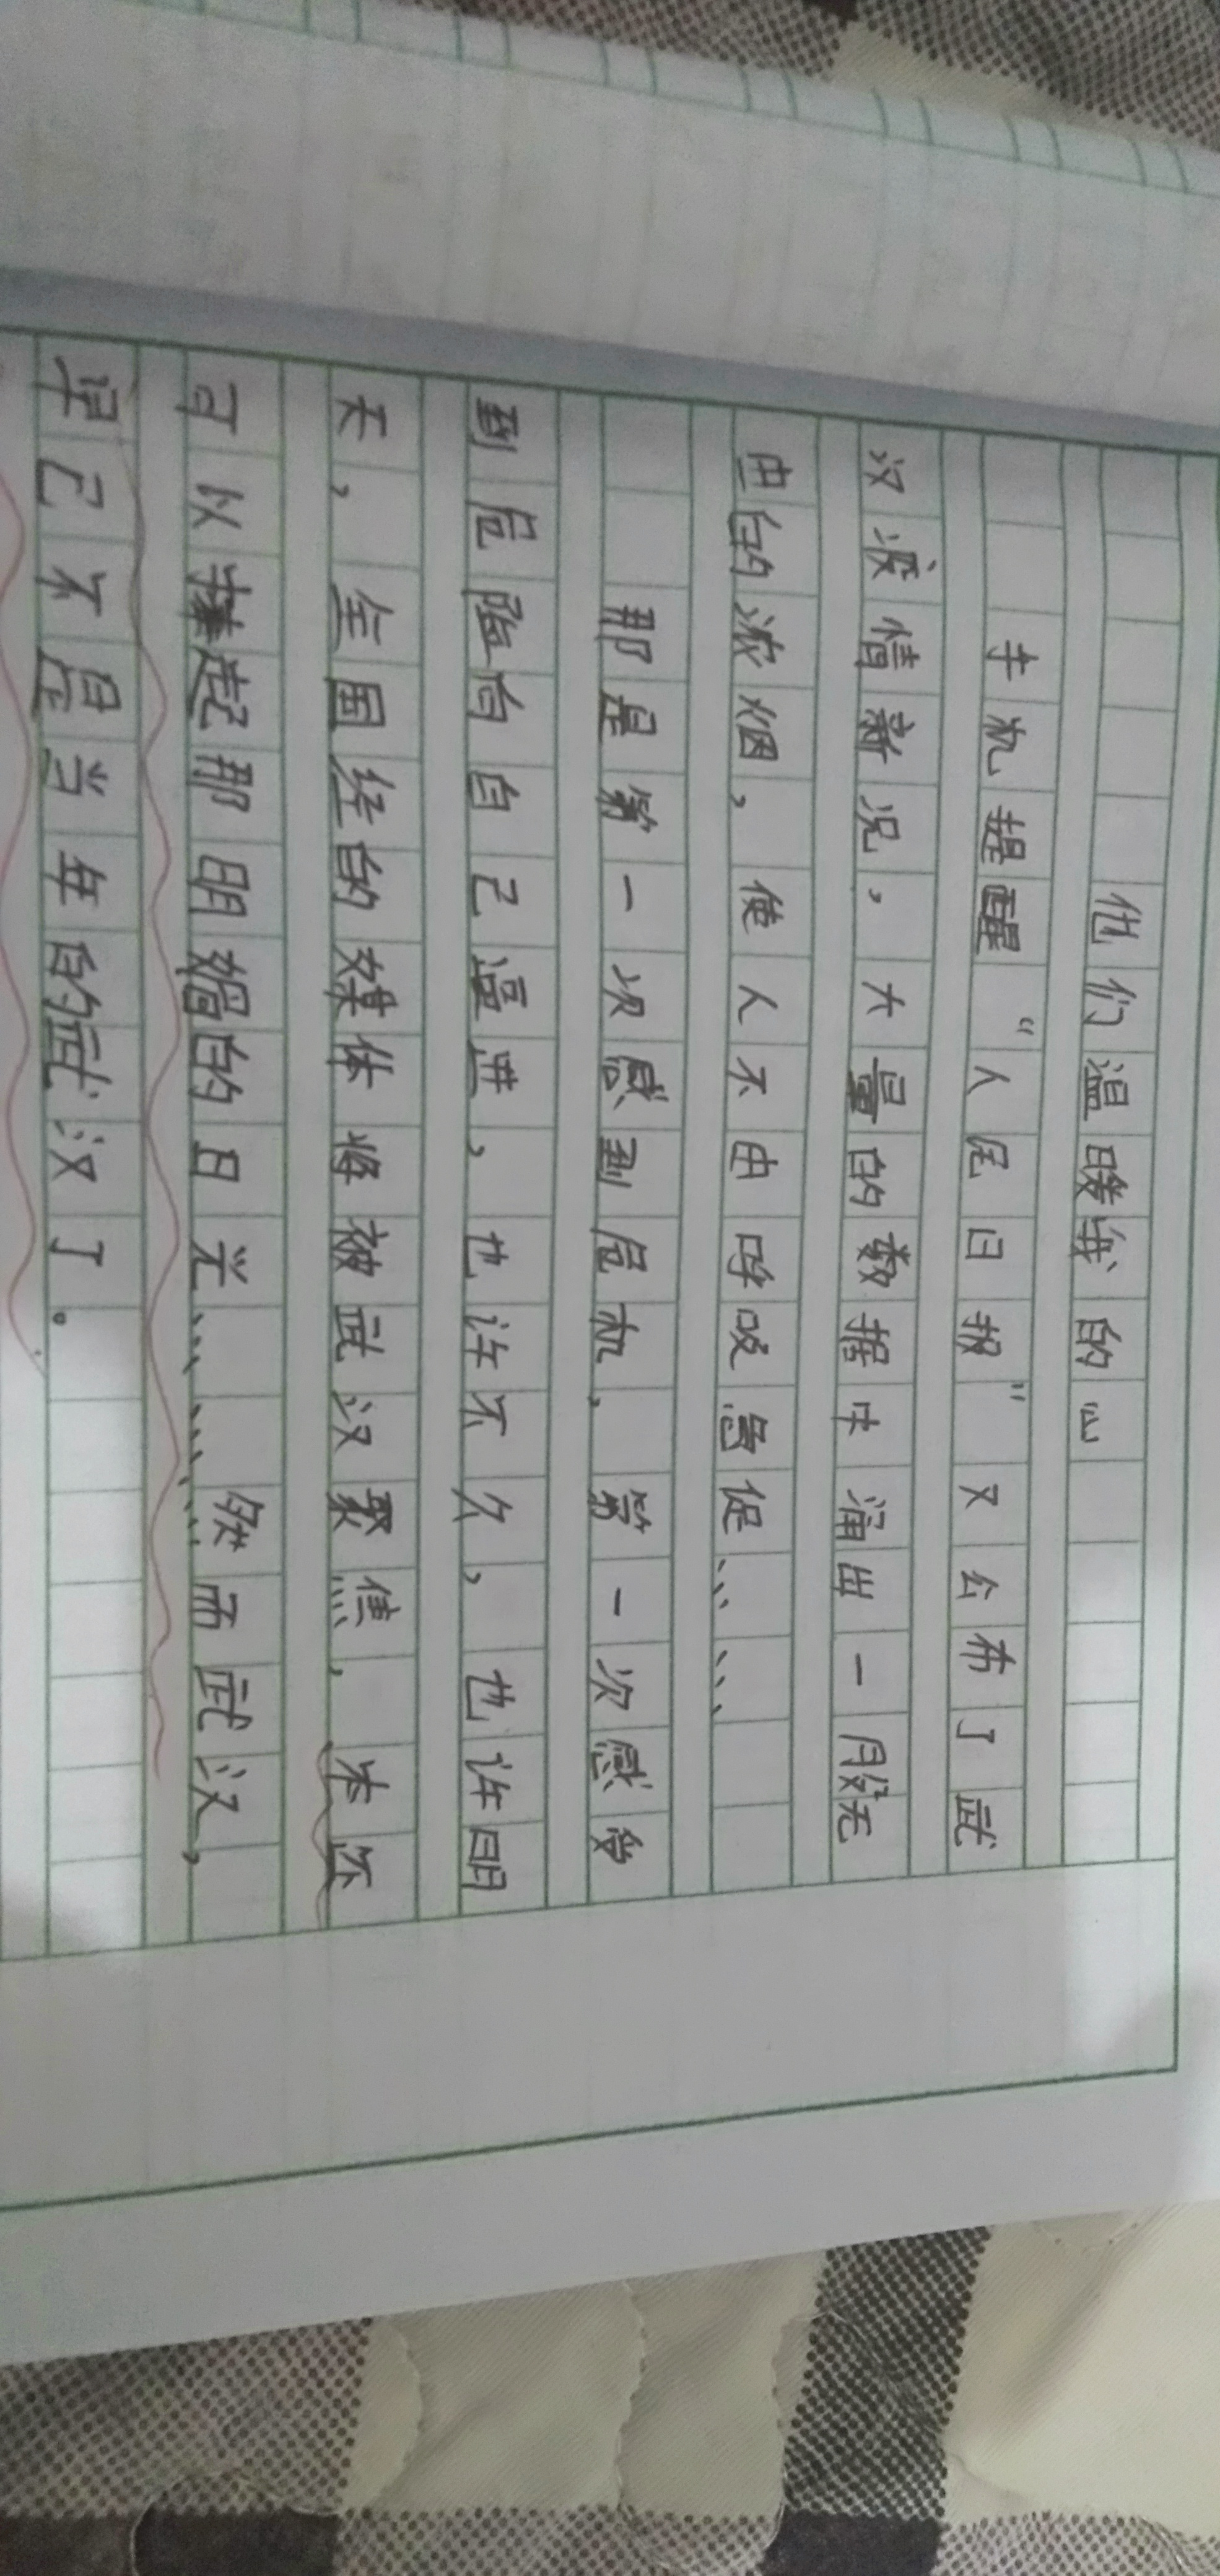 他们温暖我的心
手机提醒“人民日报”又公布了武
汉疫情新况，大量的数据中涌出一股无
由的浓烟，使人不由呼吸急促……
那是第一次感到危机，第一次感受
到危险向自己逼进，也许不久，也许明
天，全国经的媒体将被武汉聚焦，本还
可以撑起那明媚的日光……然而武汉，
早已不是当年的武汉了。